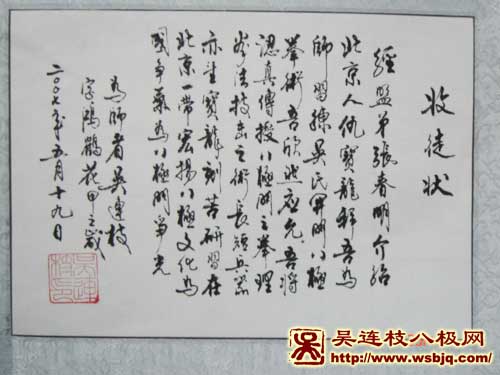 收徒状
經盟弟張春明介紹
北京人仇寶龍拜吾為
師習練吴氏開門八極
拳術吾欣然應允吾將
認真傳授八極門之拳理
拳法技击之術長短兵器
亦望寶龍刻苦研習在
北京一带宏揚八極文化為
國争氣為八極門争光
為師者吴連枝
字鴻鶴花甲之歲
二〇〇七年五月十九日
吴連枝印
吴连枝八极网
http://www.wsbjq.com